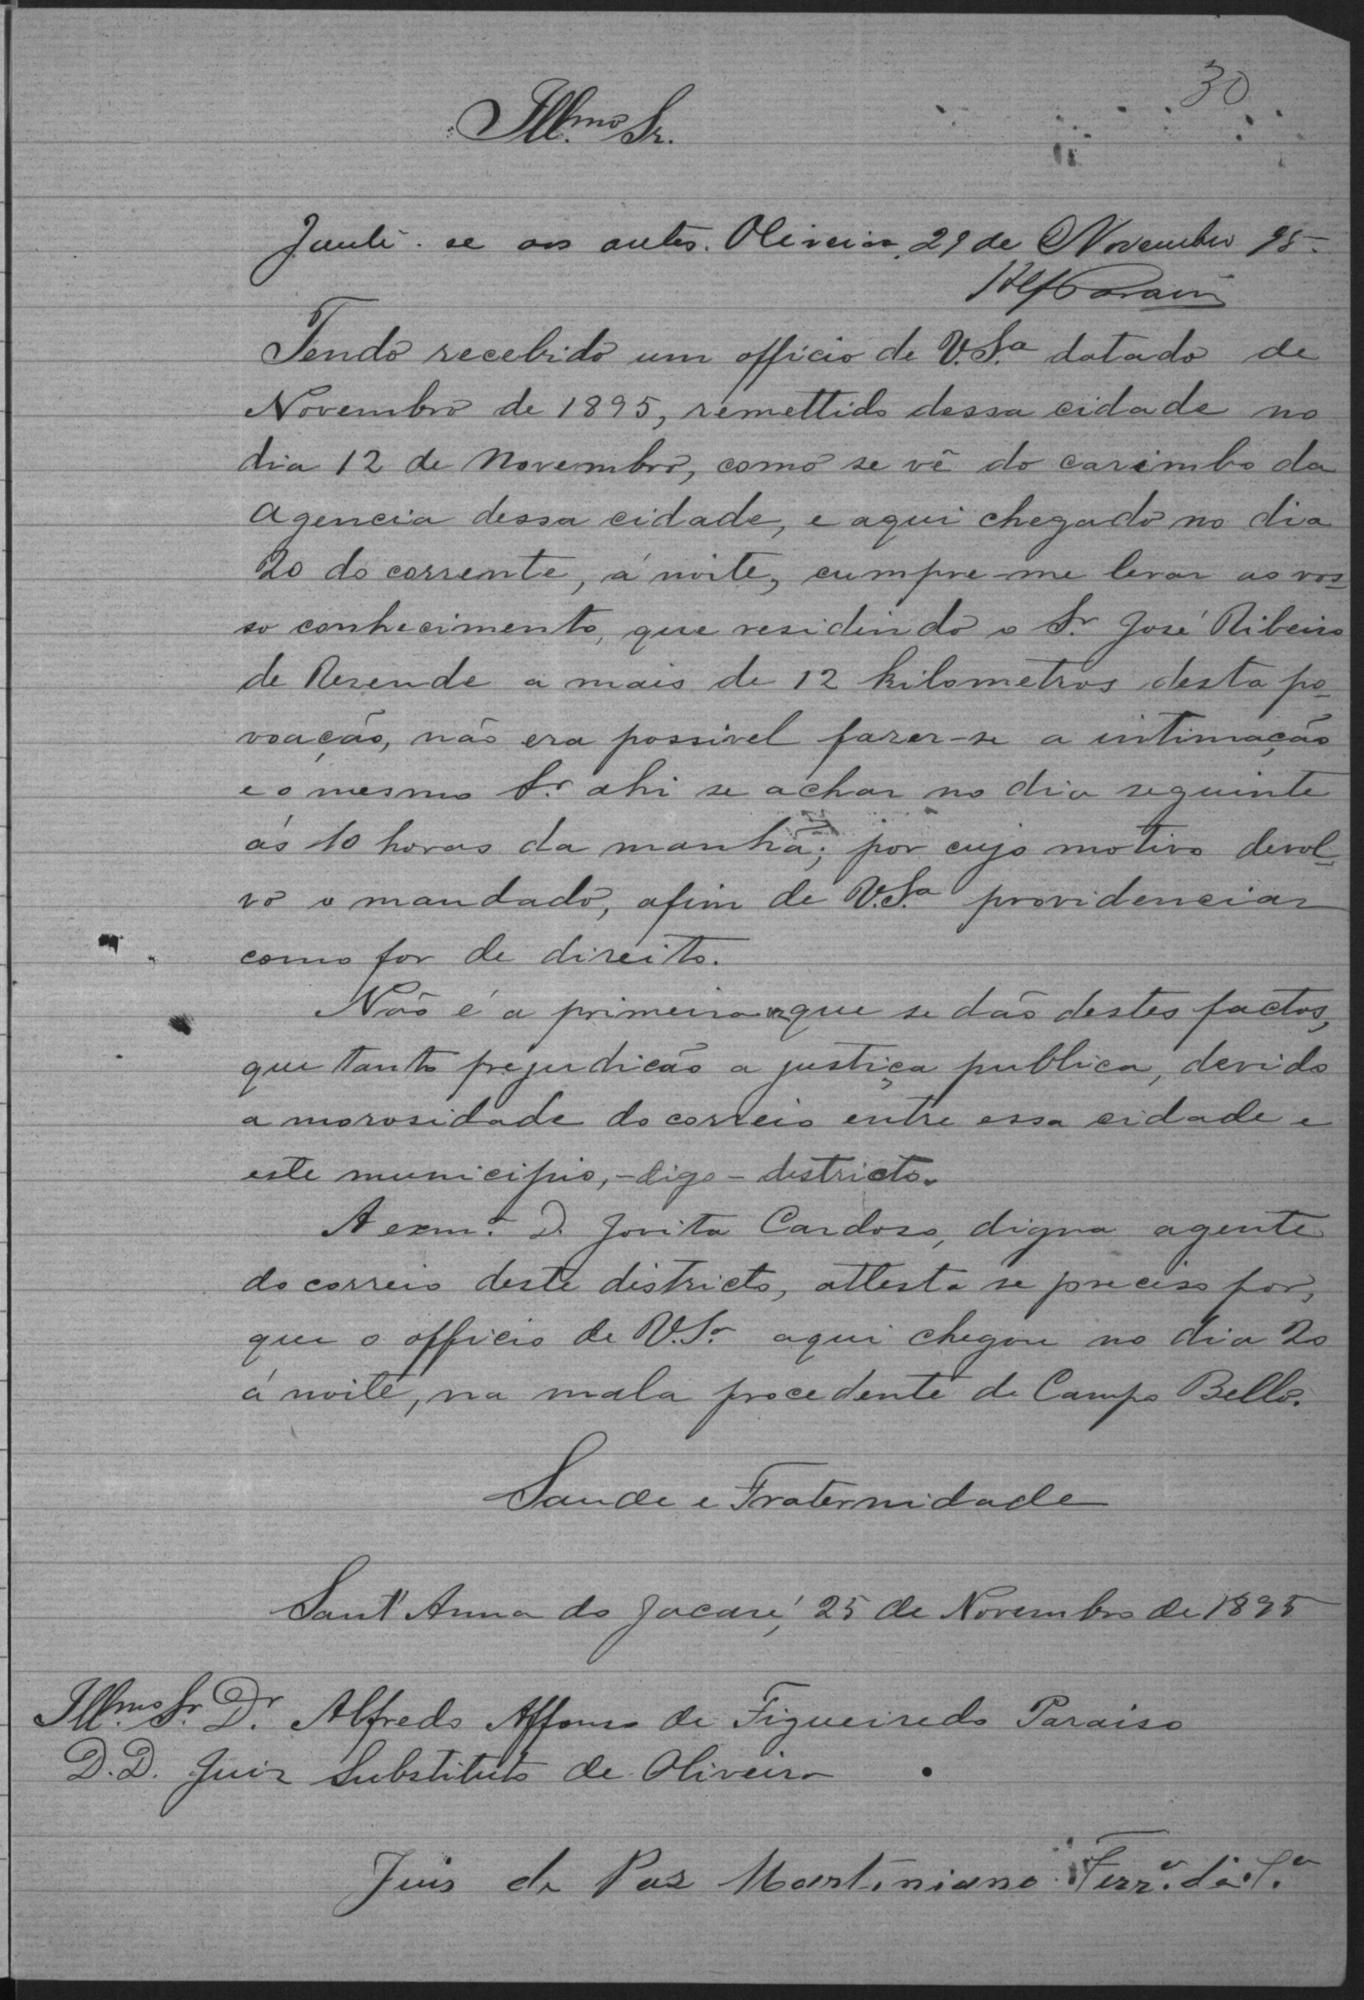 30
Illmo. Sr.
Junte-se aos autos. Oliveira, 29 de Novembro 95.
Tendo recebido um officio de V.Sa. datado de
Novembro de 1895, remettido dessa cidade no
dia 12 de Novembro, como se vê do carimbo da
Agencia dessa cidade, e aqui chegado no dia
20 do corrente, á noite, cumpre-me levar ao vos-
so conhecimento, que residindo o Sr. José Ribeiro
de Rezende a mais de 12 kilometros desta po-
voação, não era possivel fazer-se a intimação
e o mesmo Sr. ahi se achar no dia seguinte
ás 10 horas da manhã; por cujo motivo devol-
vo o mandado, afim de V.Sa. providenciar
como for de direito.
Não é a primeira que se dão destes factos,
que tanto prejudicão a justiça publica, devido
a morosidade do correio entre essa cidade e
este municipio, - digo - districto.
A exma. D. Jovita Cardoso, digna agente
do correio deste districto, attesta se preciso for,
que o officio de V.Sa. aqui chegou no dia 20
á noite, na mala procedente de Campo Bello.
Saude e Fraternidade
Sant'Anna do Jacaré, 25 de Novembro de 1895
Illmo. Sr. Dr. Alfredo Affonso de Figueiredo Paraiso
D.D. Juiz Substituto de Oliveira
Juis de Paz Martiniano Ferra. da Sa.